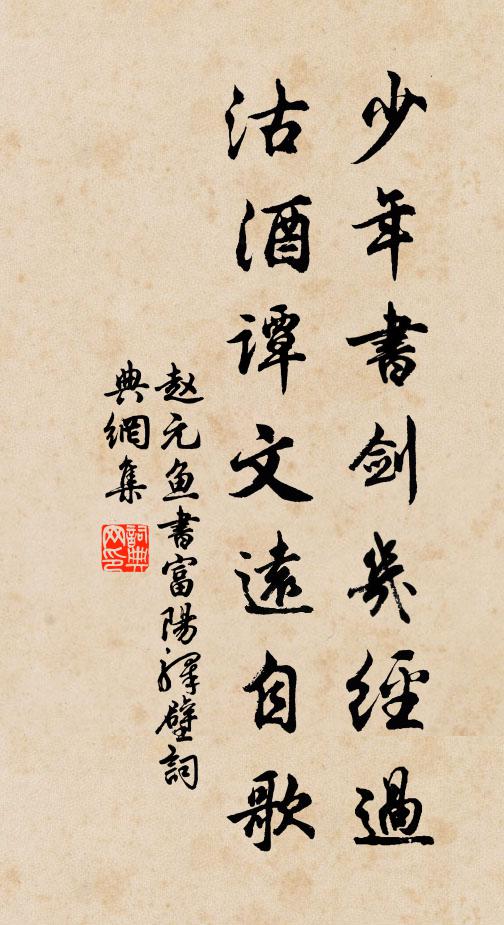 少年書劍幾經過
沽酒譚文遠自歌
赵元鱼書富陽驛壁詞
典網集
詞典網印